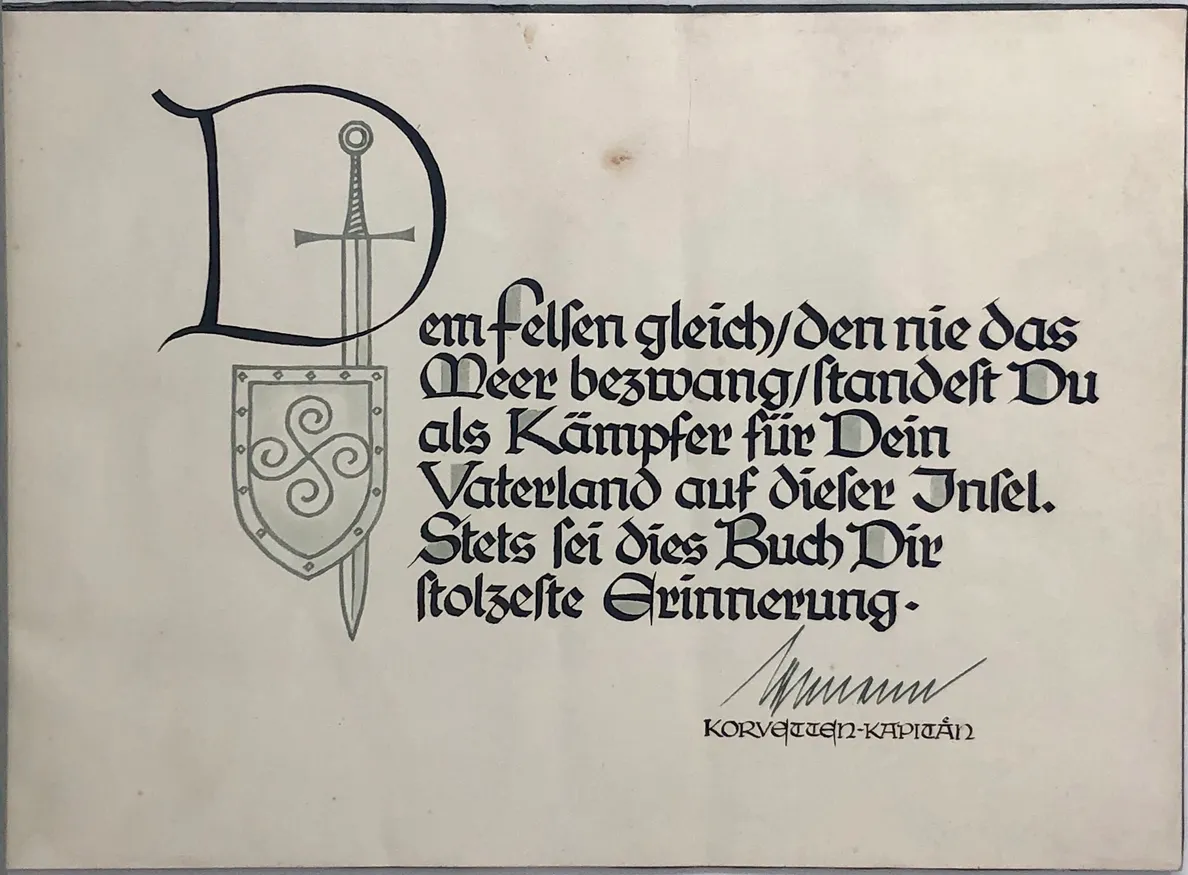 Dem Felsen gleich/den nie das
Meer bezwang/standest Du
als Kämpfer für Dein
Vaterland auf dieser Insel.
Stets sei dies Buch Dir
stolzeste Erinnerung.
KORVETTEN-KAPITÄN